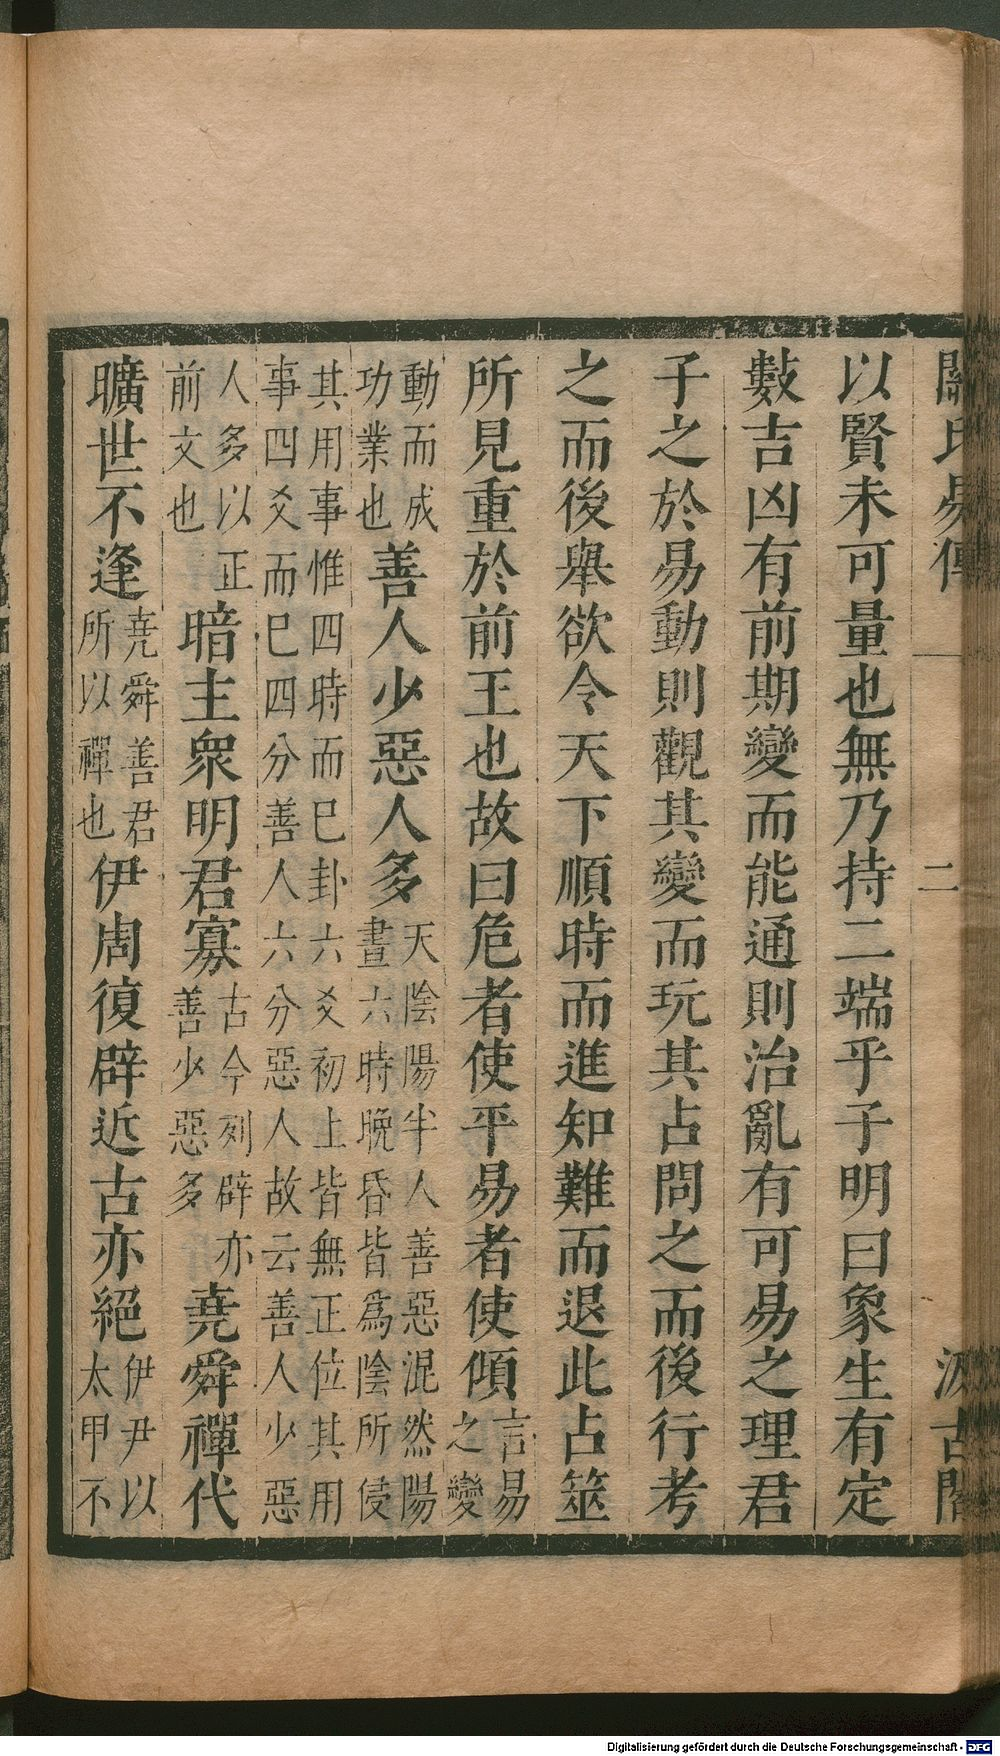 關氏易傳 二 汲古閣
以賢未可量也無乃持二端乎子明曰象生有定
數吉凶有前期變而能通則治亂有可易之理君
子之於易動則觀其變而玩其占問之而後行考
之而後舉欲令天下順時而進知難而退此占筮
所見重於前王也故曰危者使平易者使傾言易之變
動而成功業也善人少惡人多天陰陽半人善惡混然陽晝六時晚昏皆爲陰所侵
其用事惟四時而巳卦六爻初上皆無正位其用
事四爻而巳四分善人六分惡人故云善人少惡
人多以正前文也暗主衆明君寡古今列辟亦善少惡多堯舜禪代
曠世不逢堯舜善君所以禪也伊周復辟近古亦絕伊尹以太甲不
Digitalisierung gefördert durch die Deutsche Forschungsgemeinschaft - DFG